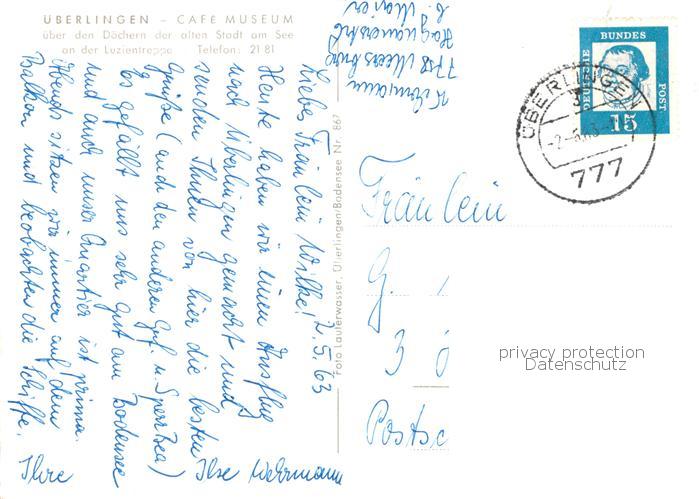 ÜBERLINGEN – CAFÉ MUSEUM
über den Dächern der alten Stadt am See
an der Luzientreppe Telefon: 21 81
2.5.63
Liebes Fräulein Wilke!
Heute haben wir einen Ausflug
nach Überlingen gemacht und
senden Ihnen von hier die besten
Grüße (auch den anderen
Es gefällt uns sehr gut am Bodensee
und auch unser Quartier ist prima.
Abends sitzen wir immer auf dem
Balkon und beobachten die Schiffe.
Ihre Ilse Wehrmann
Foto Lauterwasser, Überlingen/Bodensee Nr. 867
Wehrmann
7758 Meersburg
b. Maier
DEUTSCHE BUNDES POST
15
ÜBERLINGEN
777
Fräulein
G.
3
Postsc
privacy protection
Datenschutz